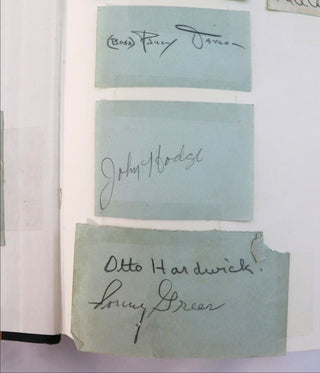 (Bass) Billy Taylor
John Hodge
Otto Hardwick.
Sonny Greer